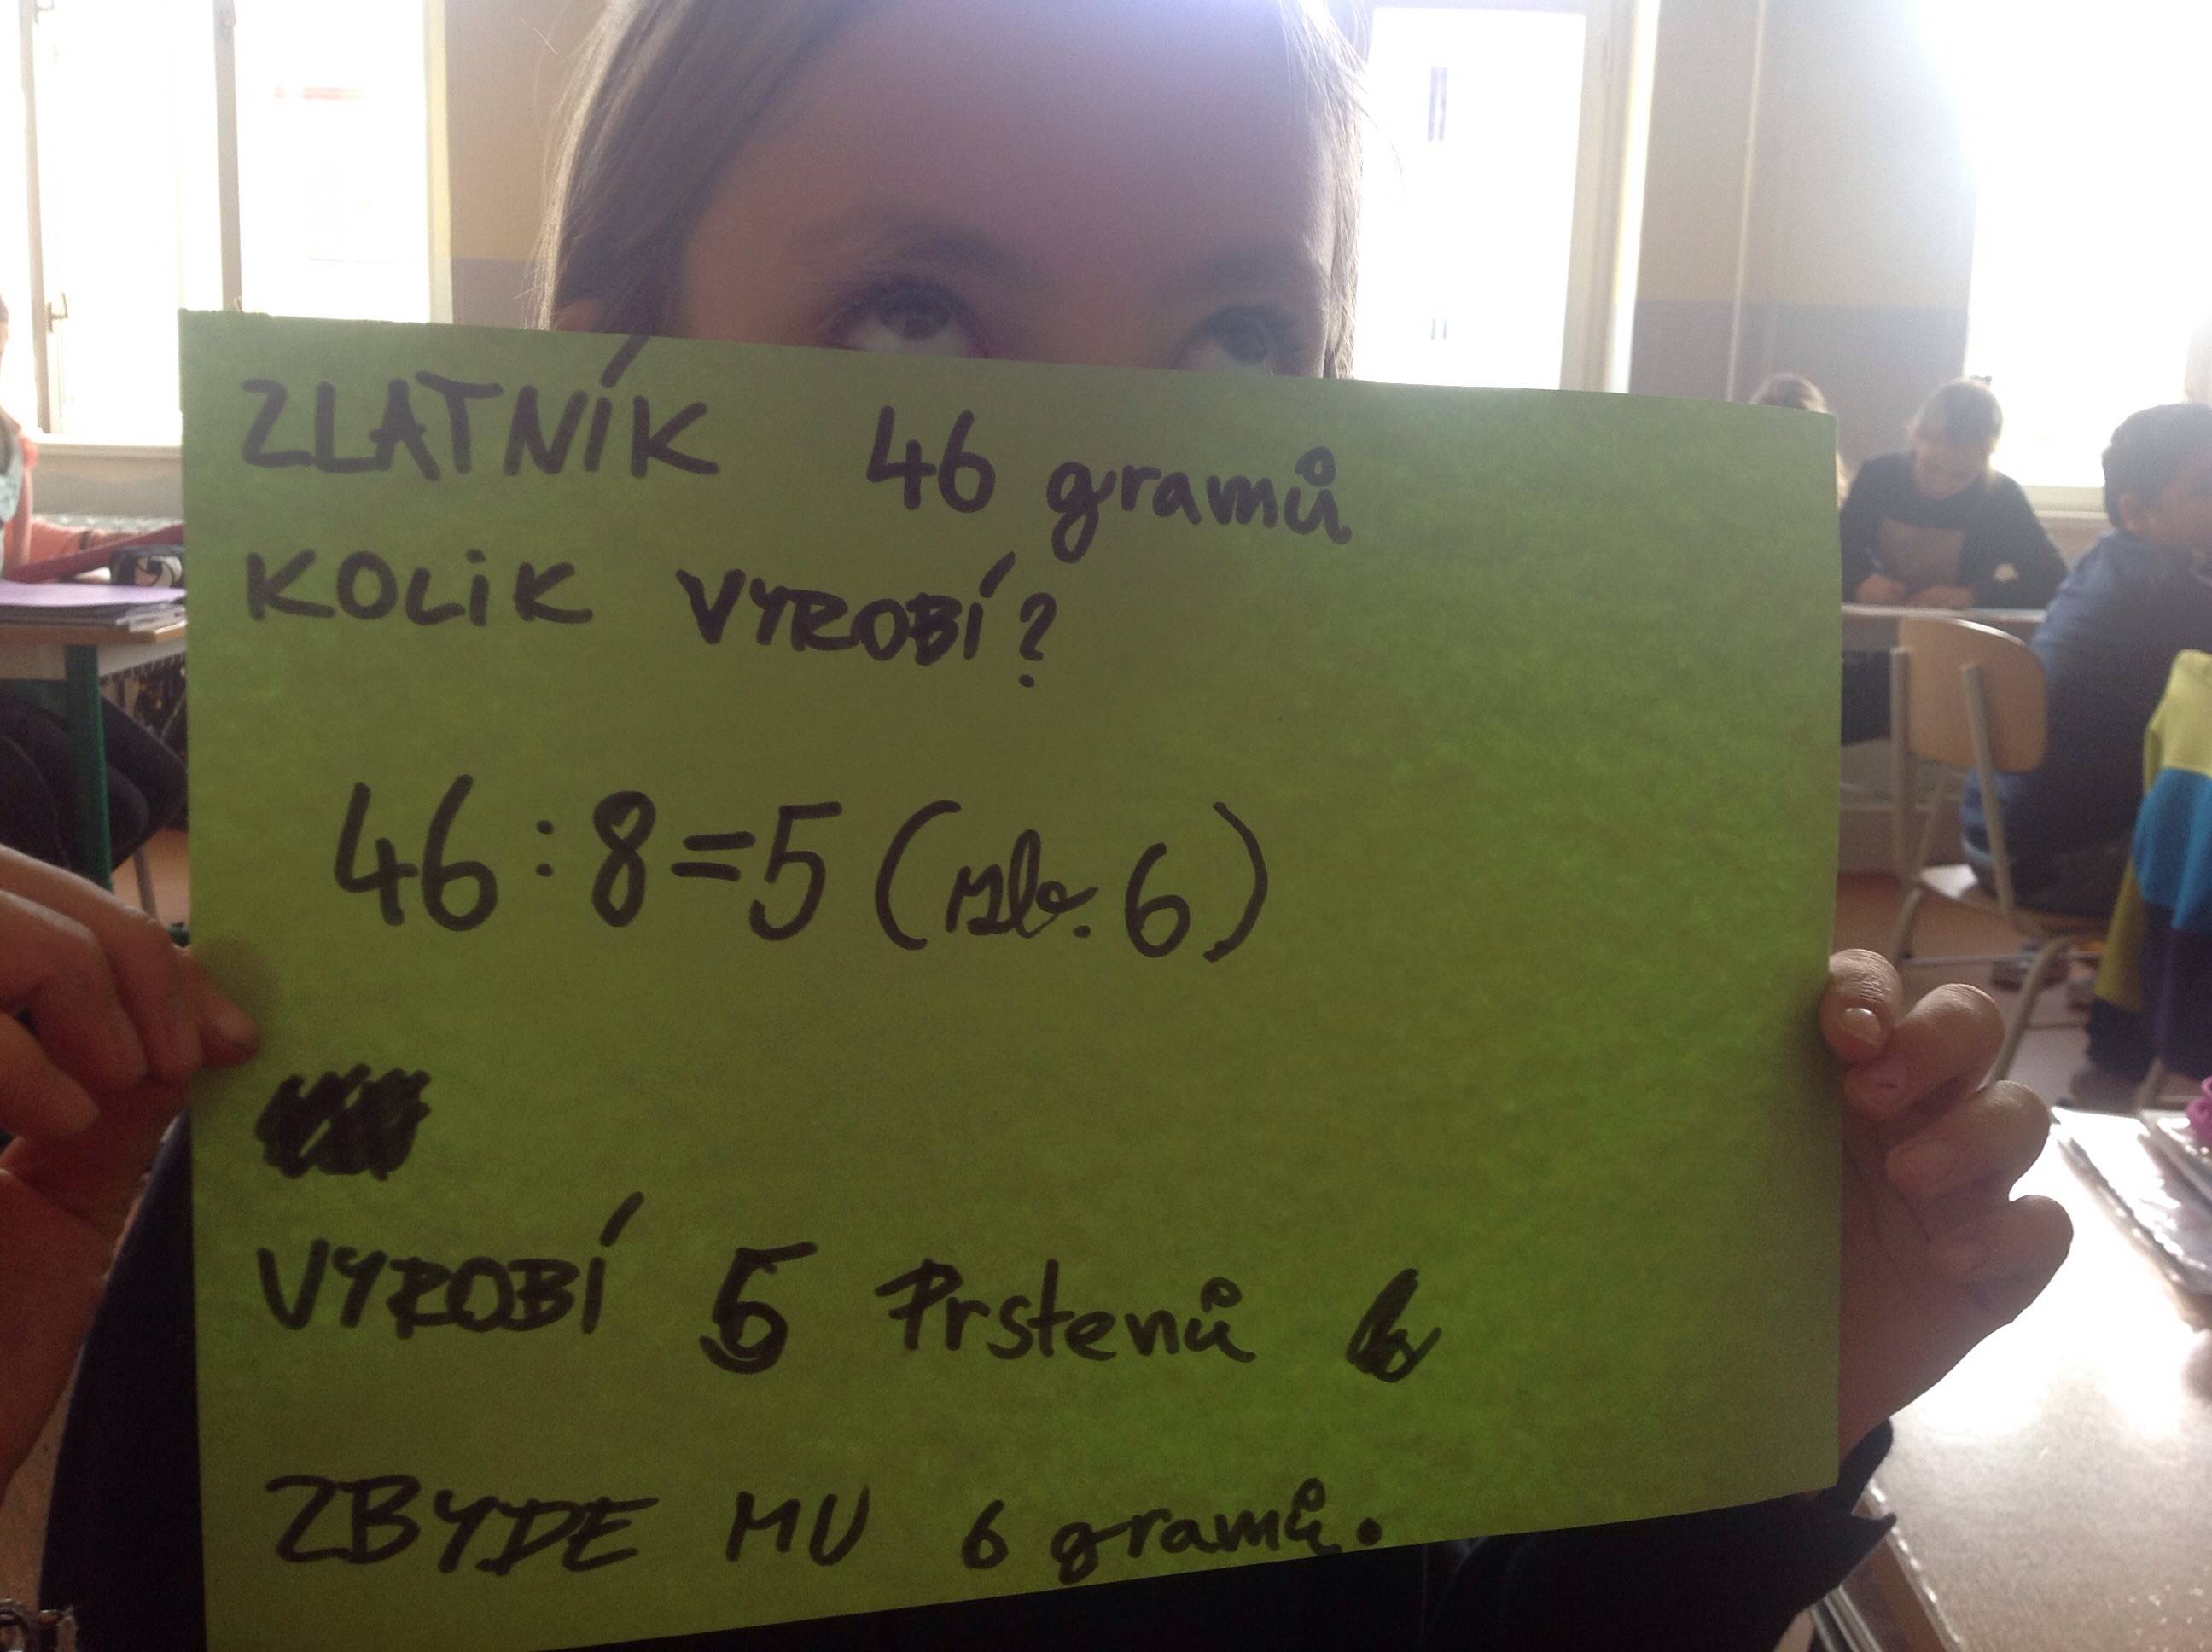 ZLATNÍK 46 gramů
KOLiK VYROBÍ?
46:8=5 (zb. 6)
VYROBÍ 5 Prstenů
ZBYDE MU 6 gramů.